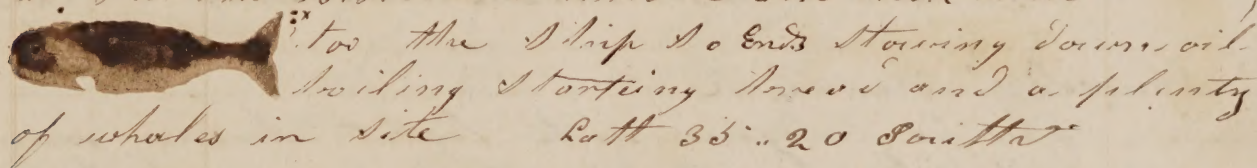 too the Ship So Ends stowing down oil
boiling starting bread and a plenty
of whales in site Latt 35 .. 20 South